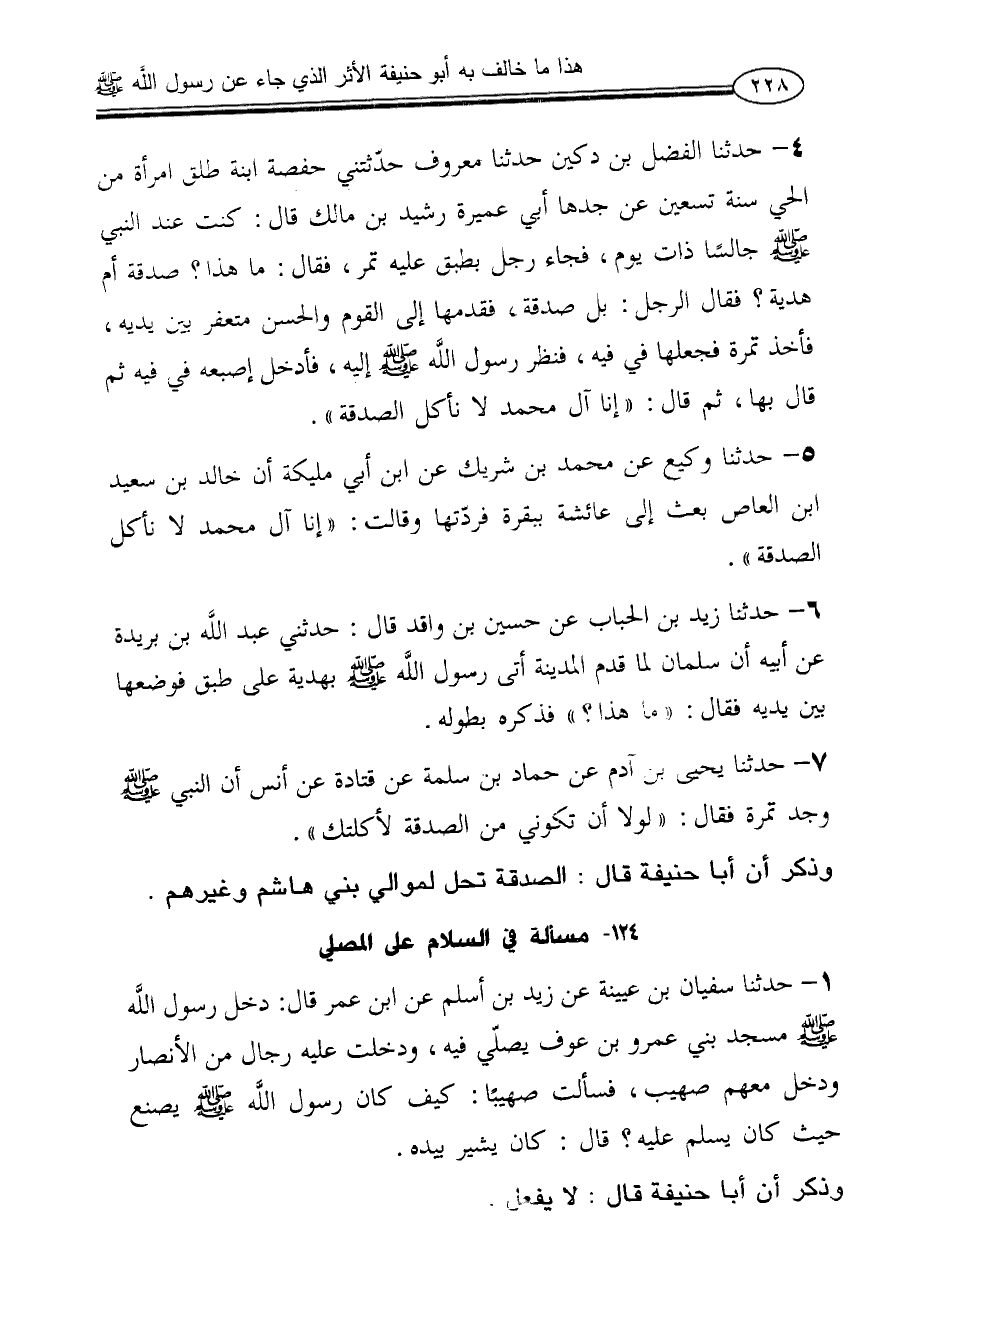 ٢٢٨
هذا ما خالف به أبو حنيفة الأثر الذي جاء عن رسول اللَّه ﷺ
٤- حدثنا الفضل بن دكين حدثنا معروف حدّثتني حفصة ابنة طلق امرأة من
الحي سنة تسعين عن جدها أبي عميرة رشيد بن مالك قال : كنت عند النبي
ﷺ جالسًا ذات يوم ، فجاء رجل بطبق عليه تمر ، فقال : ما هذا ؟ صدقة أم
هدية ؟ فقال الرجل : بل صدقة ، فقدمها إلى القوم والحسن متعفر بين يديه ،
فأخذ تمرة فجعلها في فيه ، فنظر رسول اللَّه ﷺ إليه ، فأدخل إصبعه في فيه ثم
قال بها ، ثم قال : « إنا آل محمد لا نأكل الصدقة » .
٥- حدثنا وكيع عن محمد بن شريك عن ابن أبي مليكة أن خالد بن سعيد
ابن العاص بعث إلى عائشة ببقرة فردّتها وقالت : « إنا آل محمد لا نأكل
الصدقة » .
٦- حدثنا زيد بن الحباب عن حسين بن واقد قال : حدثني عبد اللَّه بن بريدة
عن أبيه أن سلمان لما قدم المدينة أتى رسول اللَّه ﷺ بهدية على طبق فوضعها
بين يديه فقال : « ما هذا ؟ » فذكره بطوله .
٧- حدثنا يحيى بن آدم عن حماد بن سلمة عن قتادة عن أنس أن النبي ﷺ
وجد تمرة فقال : « لولا أن تكوني من الصدقة لأكلتك » .
وذكر أن أبا حنيفة قال : الصدقة تحل لموالي بني هاشم وغيرهم .
١٢٤- مسألة في السلام على المصلي
١- حدثنا سفيان بن عيينة عن زيد بن أسلم عن ابن عمر قال : دخل رسول اللَّه
ﷺ مسجد بني عمرو بن عوف يصلّي فيه ، ودخلت عليه رجال من الأنصار
ودخل معهم صهيب ، فسألت صهيبًا : كيف كان رسول اللَّه ﷺ يصنع
حيث كان يسلم عليه ؟ قال : كان يشير بيده .
وذكر أن أبا حنيفة قال : لا يفعل .